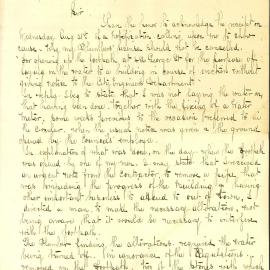 Sir
I have the honor to acknowledge the receipt on
Wednesday Augt 31st of a notification calling upon me to show
cause why my Plumbers' license should not be cancelled,
for opening up the footpath, at 450 George St for the purpose of
laying on the water to a building in course of erection without
giving notice to the City Engineers Department
In reply I beg to state that I was not laying the water on,
that having been done together with the fixing of a water
meter, some weeks previous to the occasion referred to in
the Circular, when the usual notice was given & the ground
opened by the Council's employees.
In explanation of what was done, on the day when the footpath
was opened by one of my men. I may state that I received
an urgent note from the Contractor, to remove a pipe, that
was impeding the progress of the Building, & having
other important business to attend to out of town, I
directed a man, to make the necessary alterations, not
being aware that it would be necessary to interfere
with the footpath.
The Plumber finding the alterations required the water
being turned off. In ignorance of the Regulations
removed one that footpath, two of the stones over which